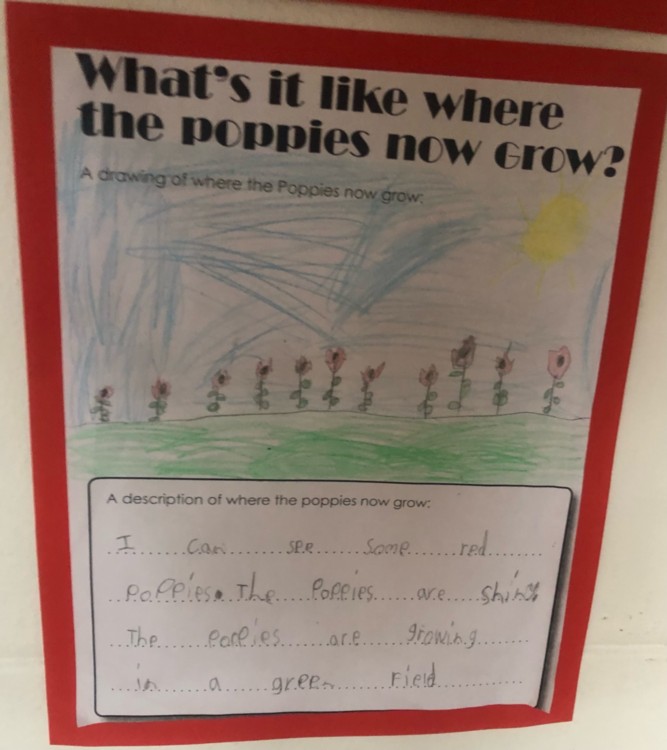 What's it like where
the poppies now Grow?
A drawing of where the Poppies now grow:
A description of where the poppies now grow:
I can see some red
poppies. The Poppies are
The poppies are growing
in a green Field